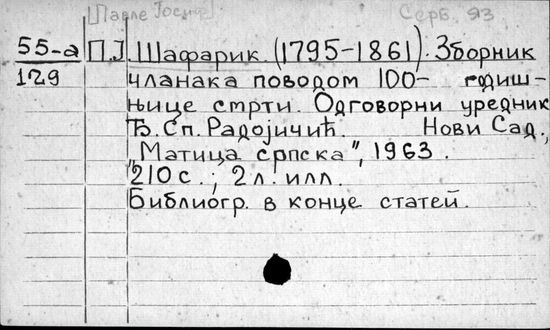 [Павле Јосиф] Серб. 93
55-а П.Ј Шафарик. (1795-1861). Зборник
129 чланака поводом 100- годиш-
њице смрти. Одговорни уредник
Ђ. Сп. Радојичић. Нови Сад,
"Матица српска", 1963.
210 с.; 2 л. илл.
Библиогр. в конце статей.